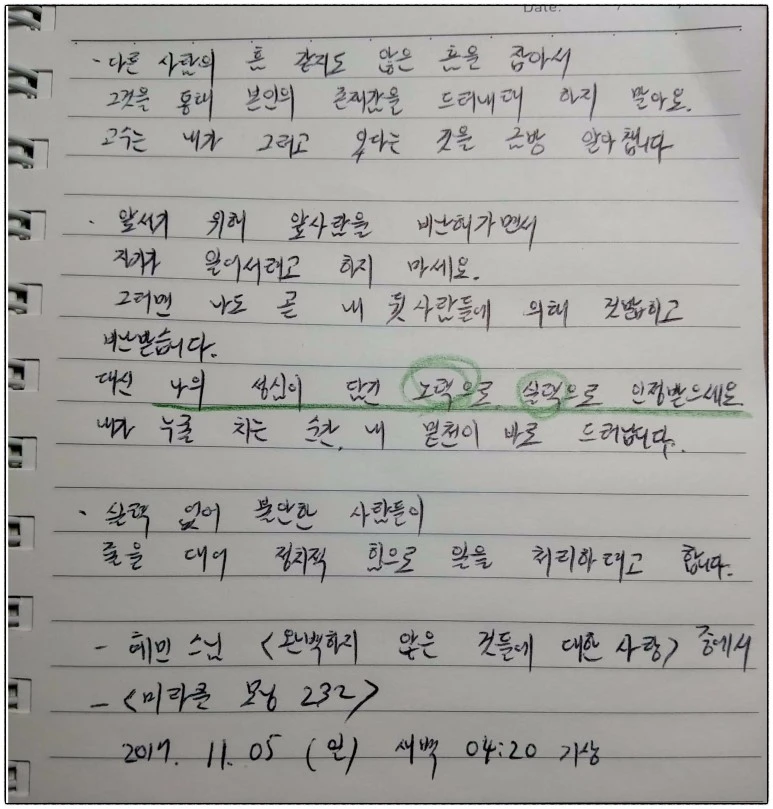 Date.
· 다른 사람의 흠 같지도 않은 흠을 잡아서
그것을 통해 본인의 존재감을 드러내려 하지 말아요.
고수는 내가 그러고 있다는 것을 금방 알아챕니다
· 앞서기 위해 앞사람을 비난해가면서
자기가 일어서려고 하지 마세요.
그러면 나도 곧 내 뒷사람들에 의해 짓밟히고
비난받습니다.
대신 나의 성심이 담긴 노력으로 실력으로 인정받으세요.
내가 누굴 치는 순간, 내 밑천이 바로 드러납니다.
· 실력 없어 불안한 사람들이
줄을 대어 정치적 힘으로 일을 처리하려고 합니다.
- 혜민 스님 <완벽하지 않은 것들에 대한 사랑> 중에서
- <미라클 모닝 232>
2017. 11. 05 (일) 새벽 04:20 기상